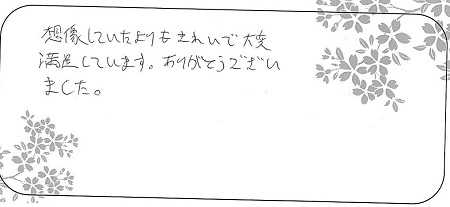 想像していたよりもきれいで大変
満足しています。ありがとうござい
ました。